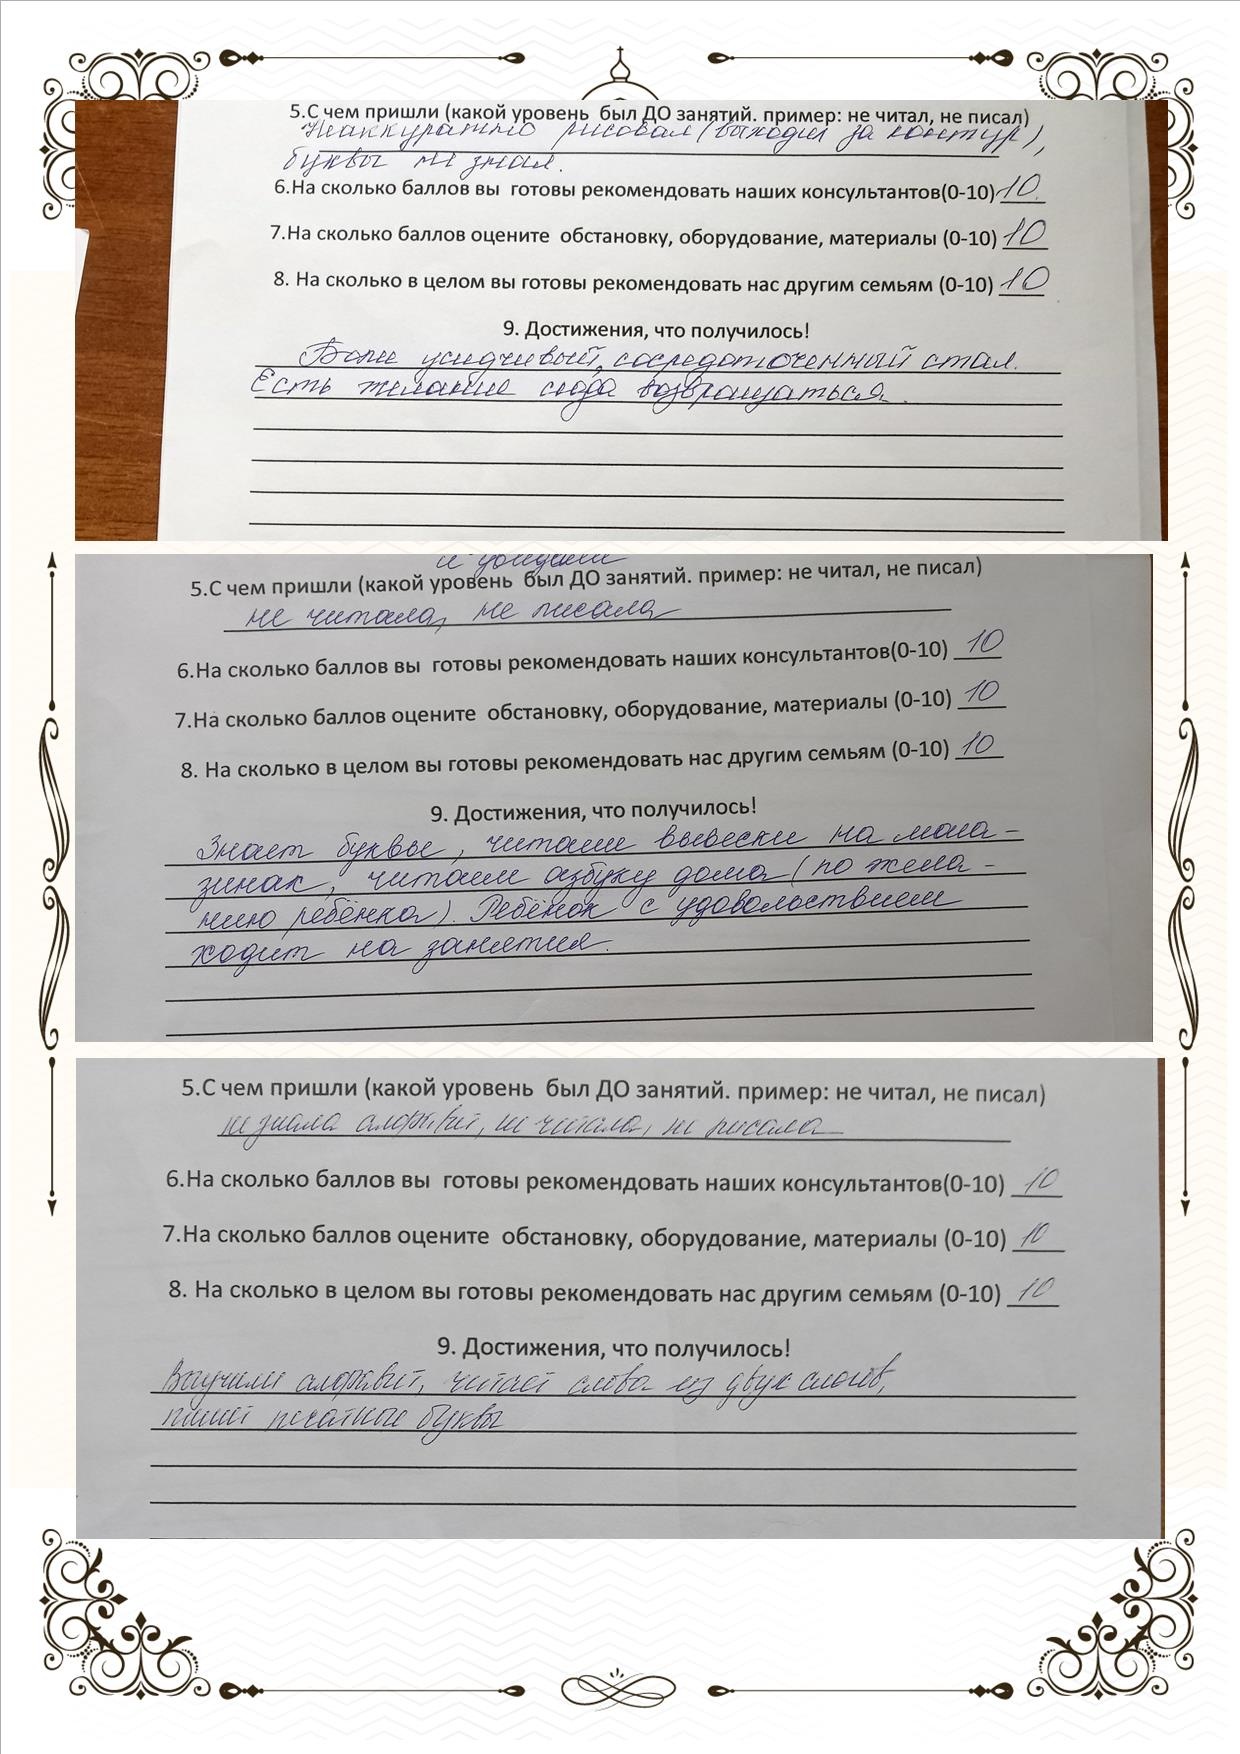 5.С чем пришли (какой уровень был ДО занятий. пример: не читал, не писал)
Неаккуратно рисовал (выходил за контур),
буквы не знал.
6.На сколько баллов вы готовы рекомендовать наших консультантов(0-10) 10.
7.На сколько баллов оцените обстановку, оборудование, материалы (0-10) 10
8. На сколько в целом вы готовы рекомендовать нас другим семьям (0-10) 10
9. Достижения, что получилось!
усидчивый, сосредоточенный стал.
Есть желание сюда возвращаться.
5.С чем пришли (какой уровень был ДО занятий. пример: не читал, не писал)
не читала, не писала
6.На сколько баллов вы готовы рекомендовать наших консультантов(0-10) 10
7.На сколько баллов оцените обстановку, оборудование, материалы (0-10) 10
8. На сколько в целом вы готовы рекомендовать нас другим семьям (0-10) 10
9. Достижения, что получилось!
Знает буквы, читаем вывески на мага-
зинах, читаем азбуку дома (по жела-
нию ребёнка). Ребёнок с удовольствием
ходит на занятия.
5.С чем пришли (какой уровень был ДО занятий. пример: не читал, не писал)
не знала алфавит, не читала, не писала
6.На сколько баллов вы готовы рекомендовать наших консультантов(0-10) 10
7.На сколько баллов оцените обстановку, оборудование, материалы (0-10) 10
8. На сколько в целом вы готовы рекомендовать нас другим семьям (0-10) 10
9. Достижения, что получилось!
Выучили алфавит, читает слова из двух слогов,
пишет печатные буквы